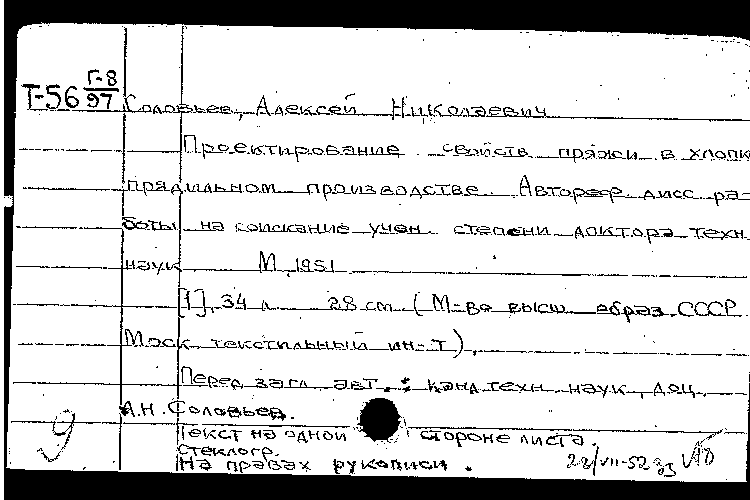 Т-56 Г-8/97 Соловьев, Алексей Николаевич
Проектирование свойств пряжи в хлопко
прядильном производстве. Автореф дисс ра-
боты на соискание учен. степени доктора техн.
наук М, 1951
[1], 34 л. 28 см. (М-во высш. образ. СССР.
Моск. текстильный ин-т).
Перед загл. авт.: канд. техн. наук, доц.
А.Н. Соловьев.
Текст на одной стороне листа.
Стеклогр.
На правах рукописи.
9